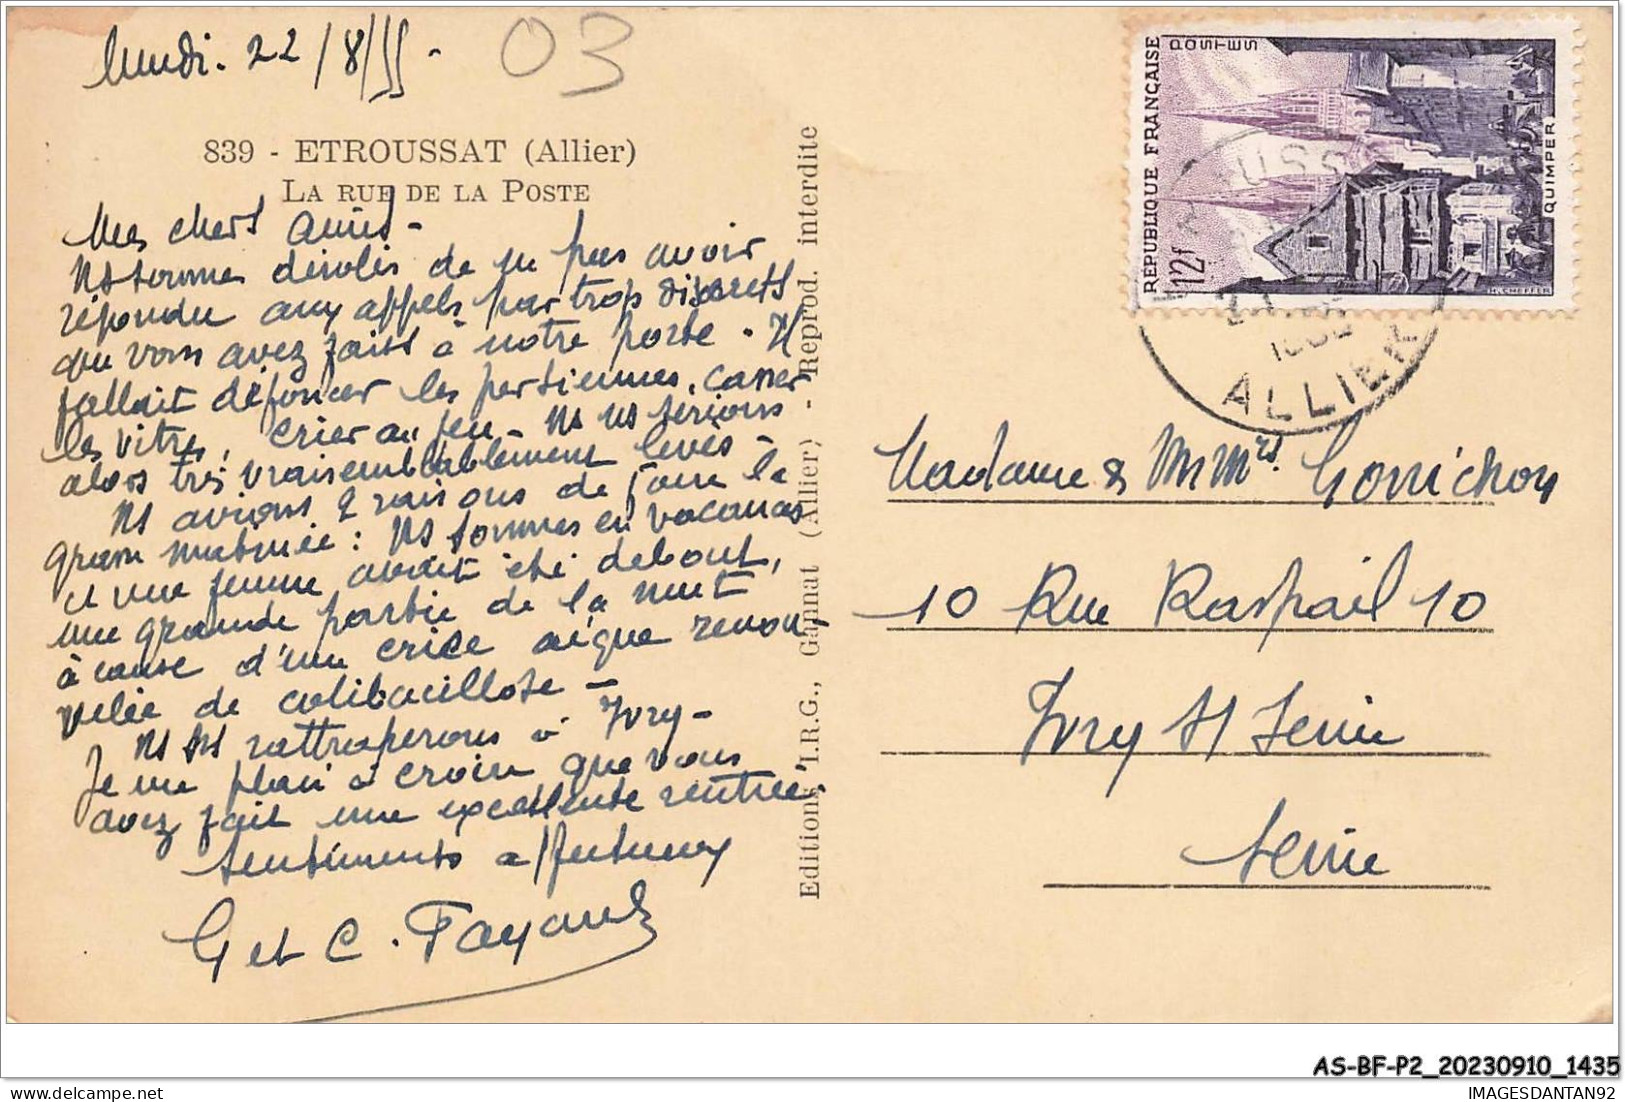 lundi. 22/8/55 -
03
839 - ETROUSSAT (Allier)
LA RUE DE LA POSTE
Mes chers amis -
Ns sommes désolés de ne pas avoir
répondu aux appels par trop discrets
que vous avez faits à notre porte. Il
fallait défoncer les persiennes, casser
les vitres, crier au feu - Ns ns serions
alors très vraisemblablement levés -
Ns avions 2 raisons de faire la
grasse matinée : Ns sommes en vacances
et ma femme avait été debout,
une grande partie de la nuit
à cause d'une crise aigue renou-
velée de colibacillose -
Ns ns rattraperons à Ivry -
Je me plais à croire que vous
avez fait une excellente rentrée.
Sentiments affectueux
G et C. Fayard
Editions I.R.G., Gannat (Allier) - Reprod. interdite
REPUBLIQUE FRANÇAISE
POSTES
12f
QUIMPER
H. CHEFFER
USS
ALLIER
Madame & MMrs. Gonichon
10 Rue Raspail 10
Ivry S/ Seine
Seine
AS-BF-P2_20230910_1435
IMAGESDANTAN92